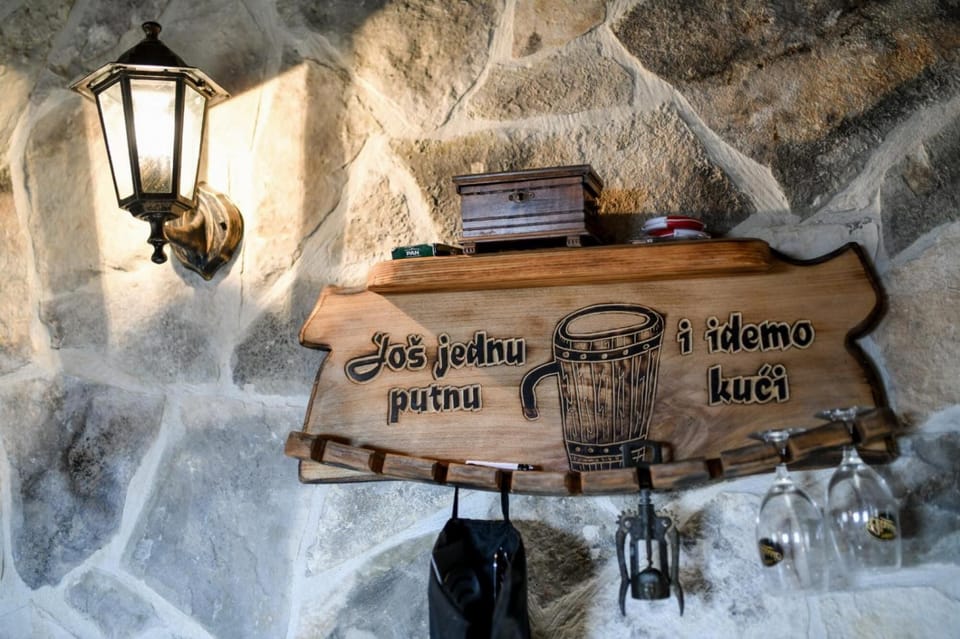 PAN
Još jednu
putnu
i idemo
kući